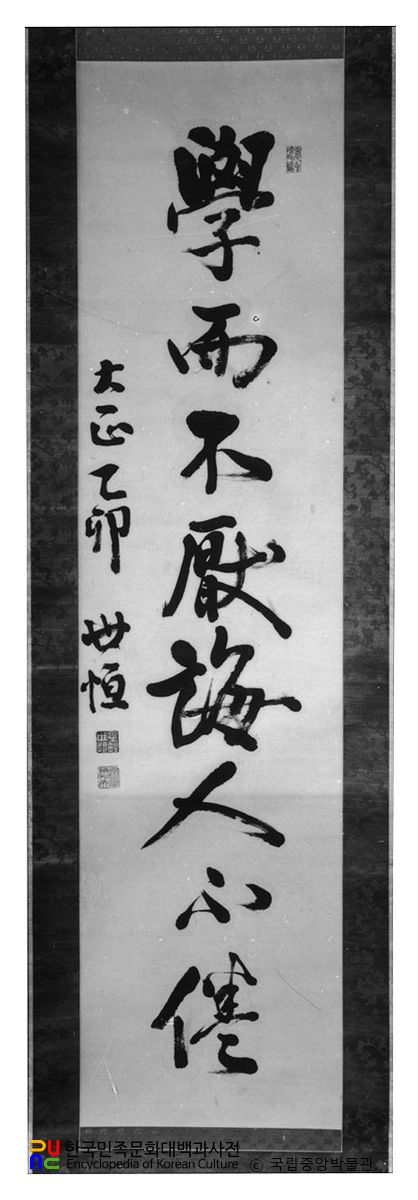 學而不厭誨人不倦
大正乙卯 世恒
한국민족문화대백과사전
Encyclopedia of Korean Culture © 국립중앙박물관